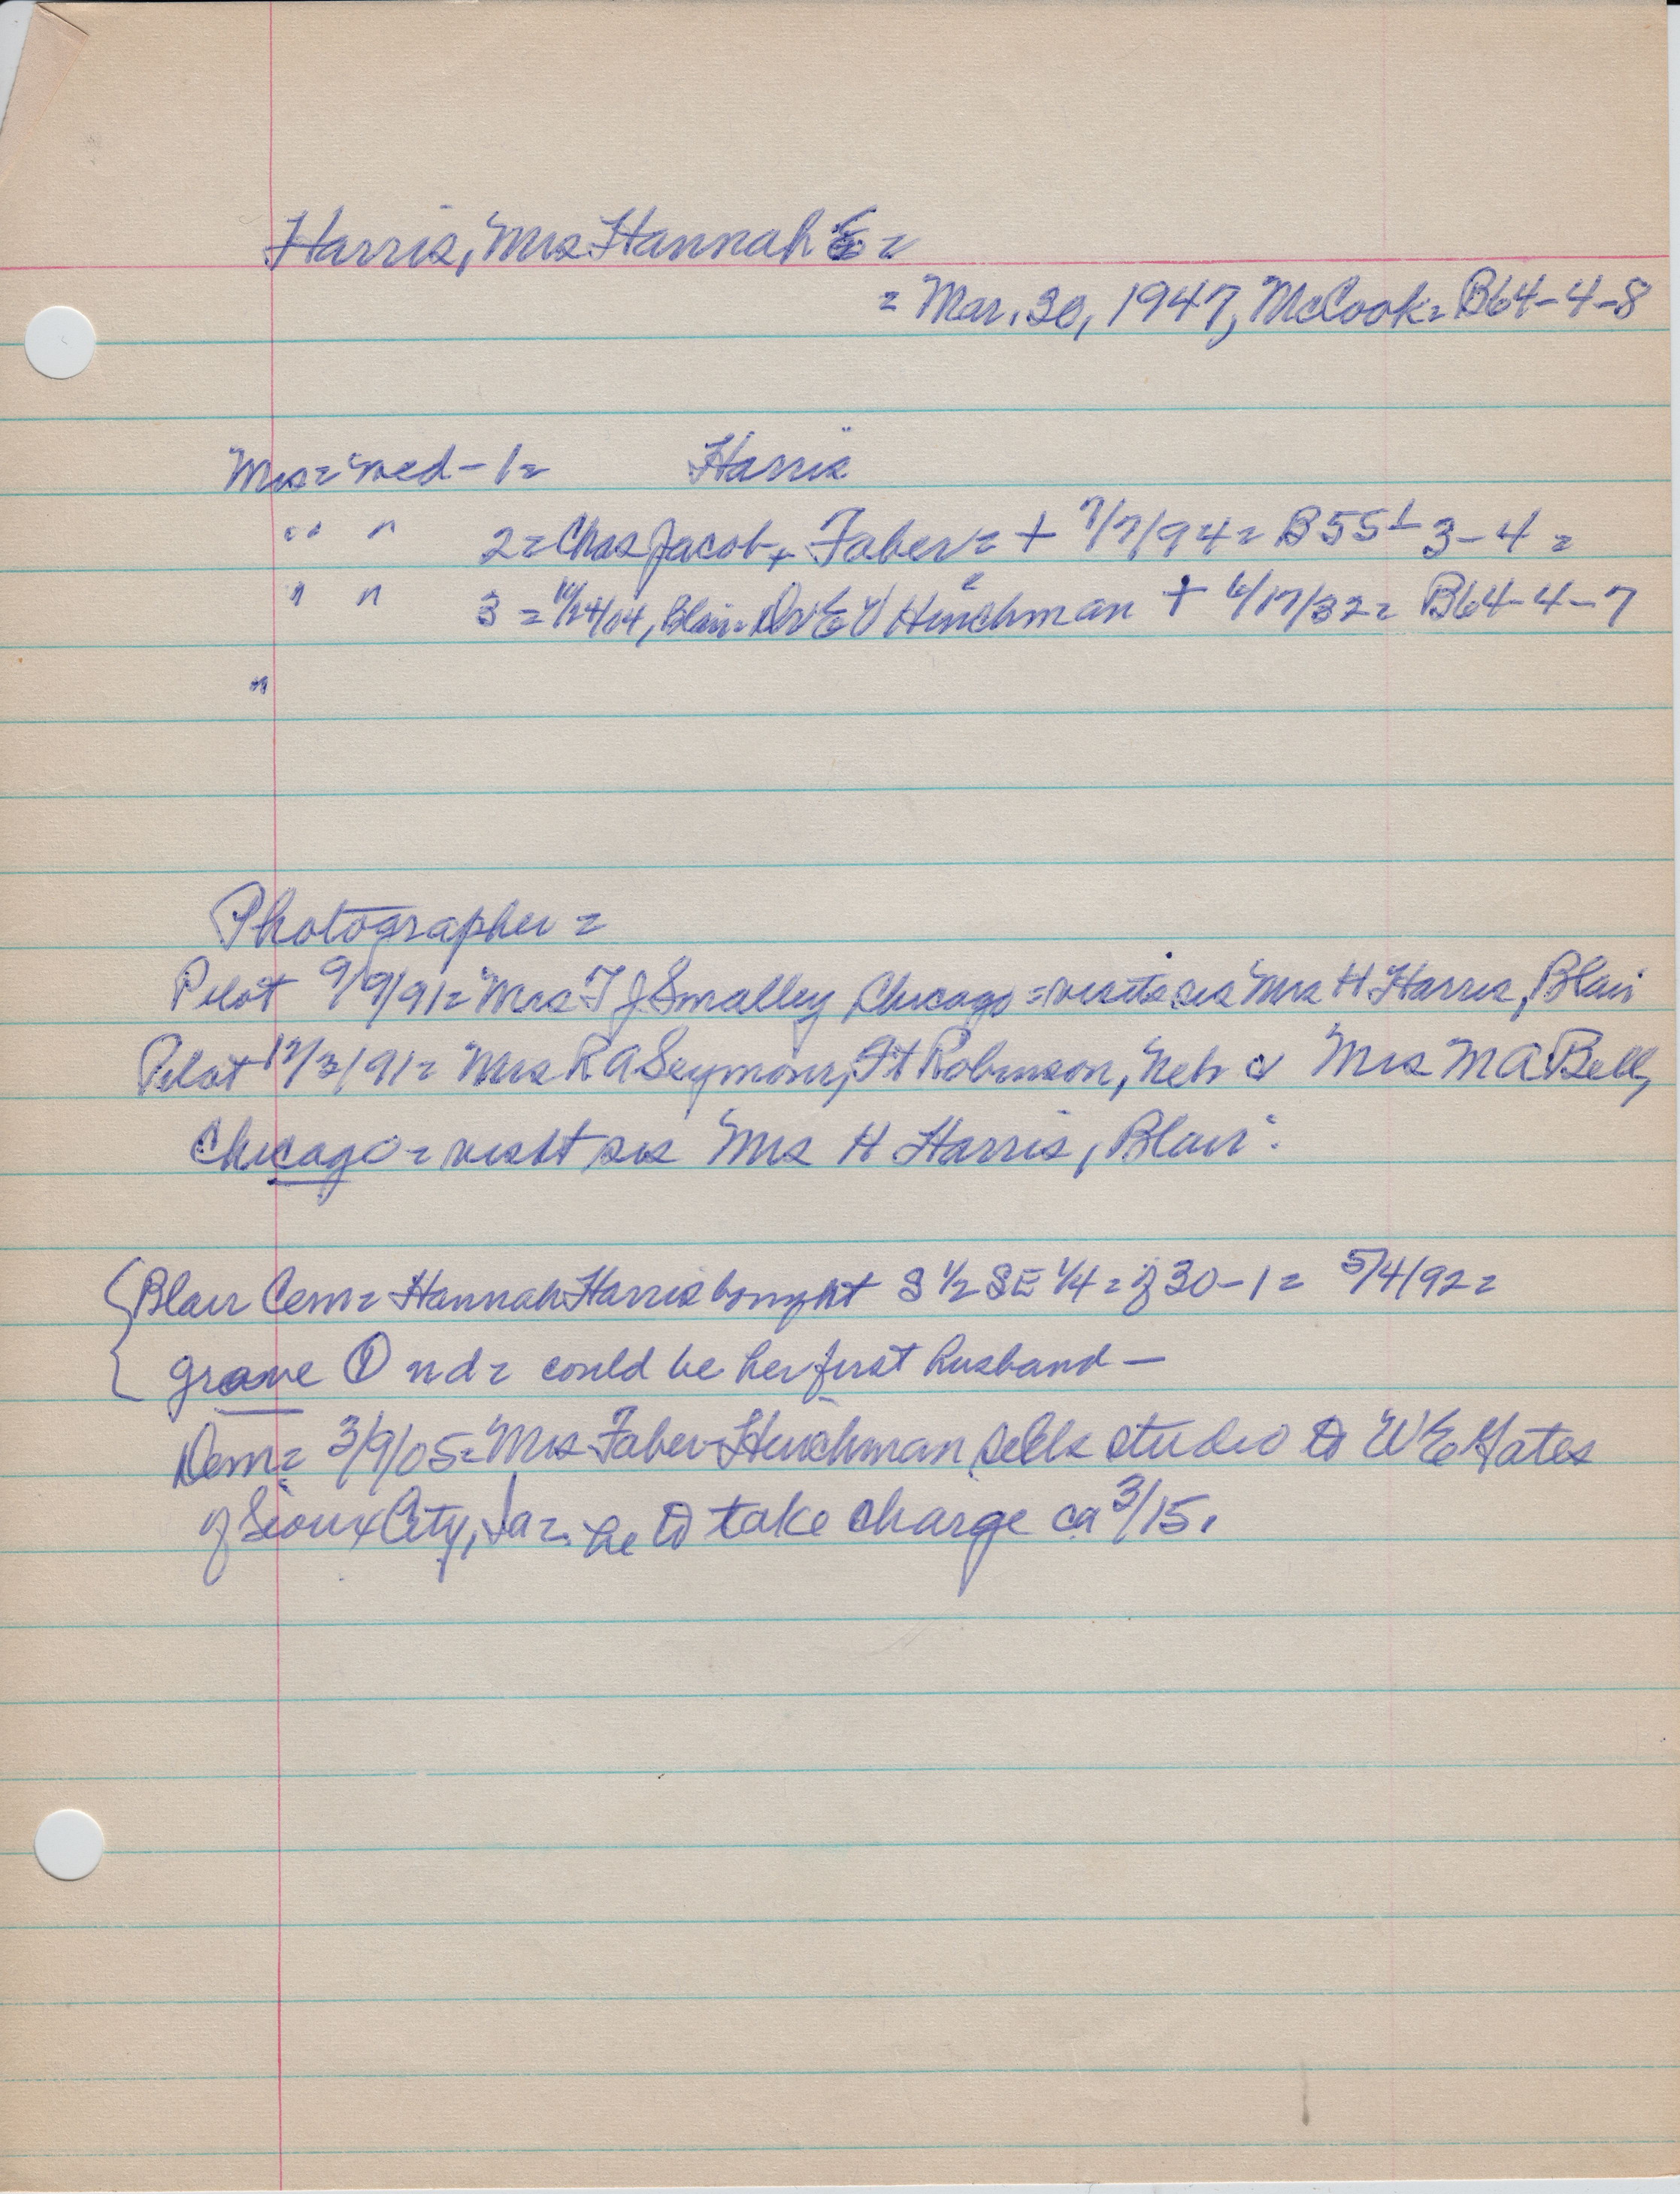 Harris, Mrs Hannah E =
= Mar. 30, 1947, McCook = B64-4-8
Mrs = wed - 1 = Harris
" " 2 = Chas Jacob Faber = + 7/7/94 = B55 3-4 =
" " 3 = /24/04, Blair = Dr E V Hinchman + 6/17/32 = B64-4-7
"
Photographer =
Pilot 9/9/91 = Mrs T J Smalley, Chicago = visits sis Mrs H Harris, Blair
Pilot 12/3/91 = Mrs R A Seymour, Ft Robinson, Neb & Mrs M A Bell,
Chicago = visit sis Mrs H Harris, Blair.
Blair Cem = Hannah Harris bought S 1/2 SE 1/4 = of 30-1 = 5/4/92 =
grave ① nd = could be her first husband —
Dem = 3/9/05 = Mrs Faber-Hinchman sells studio to W E Yates
of Sioux City, Ia = he to take charge ca 3/15.